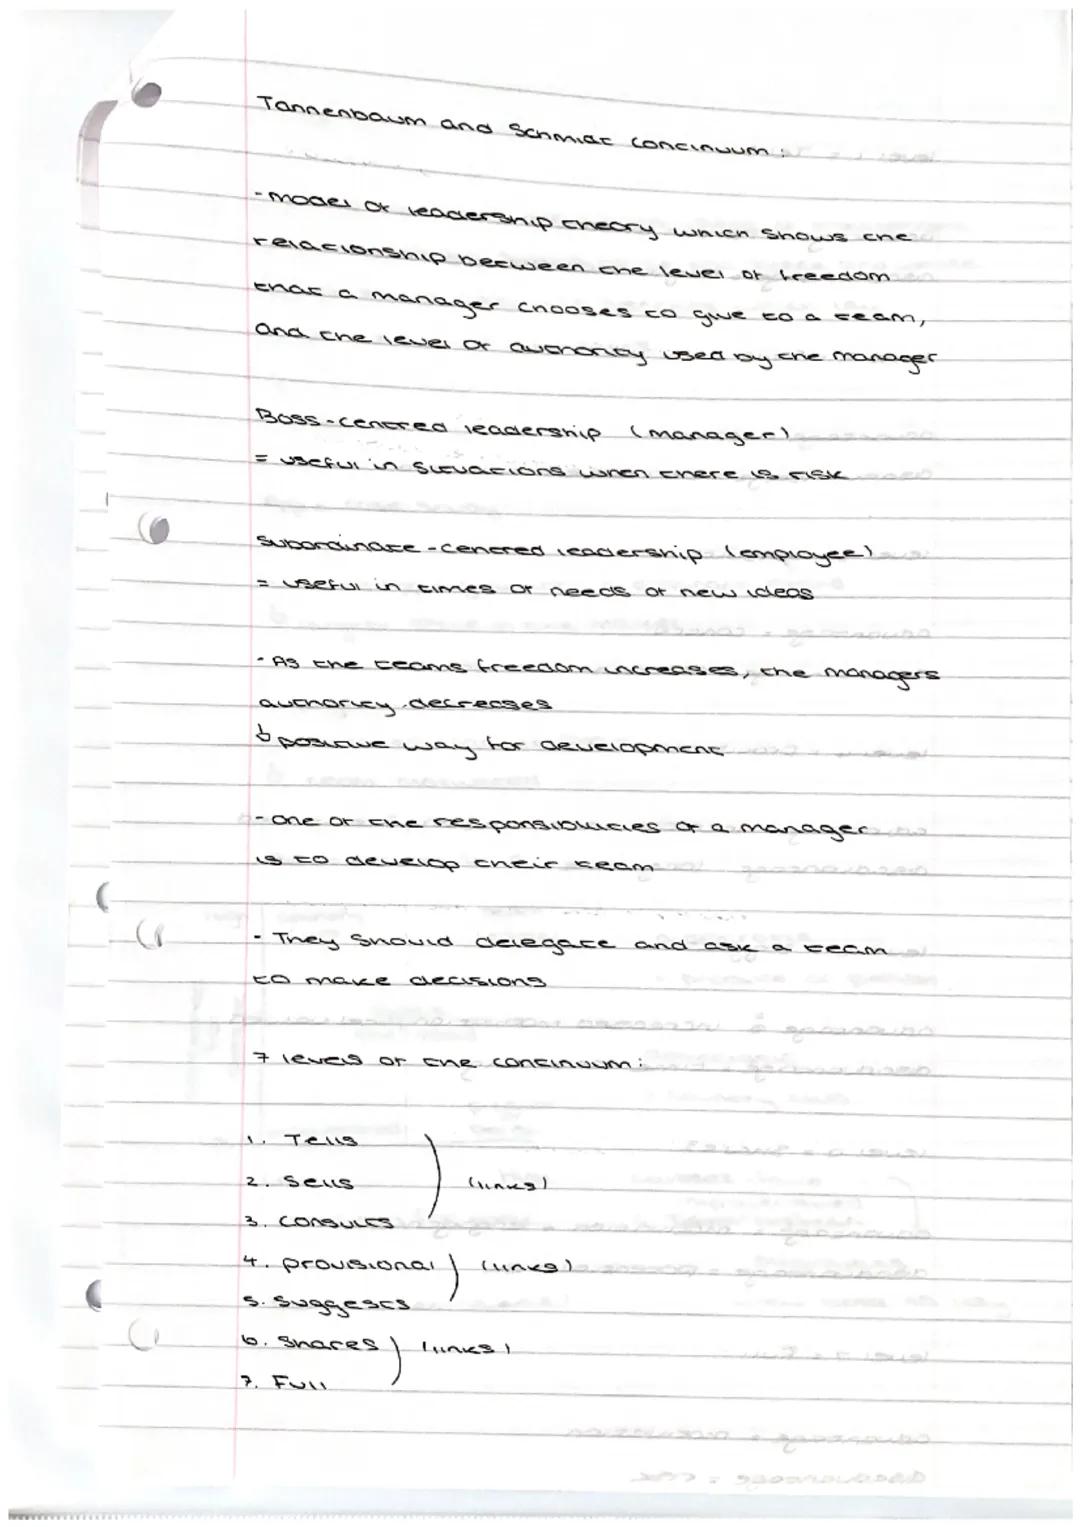 Tannenbaum and Schmidt continuum:
- model of leadership theory which shows the
relationship between the level of freedom
that a manager chooses to give to a team,
and the level of authority used by the manager
Boss-centred leadership (manager)
= useful in situations when there is risk
Subordinate-centred leadership (employee)
= useful in times of needs of new ideas
- As the teams freedom increases, the managers
authority decreases
↳ positive way for development
- One of the responsibilities of a manager
is to develop their team
- They should delegate and ask a team
to make decisions
7 levels of the continuum:
1. Tells
2. Sells (links)
3. Consults
4. Provisional (links)
5. Suggests
6. Shares (links)
7. Full